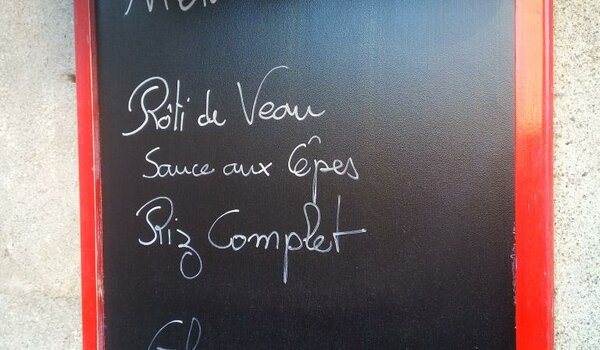 Rôti de Veau
Sauce aux Cêpes
Riz Complet